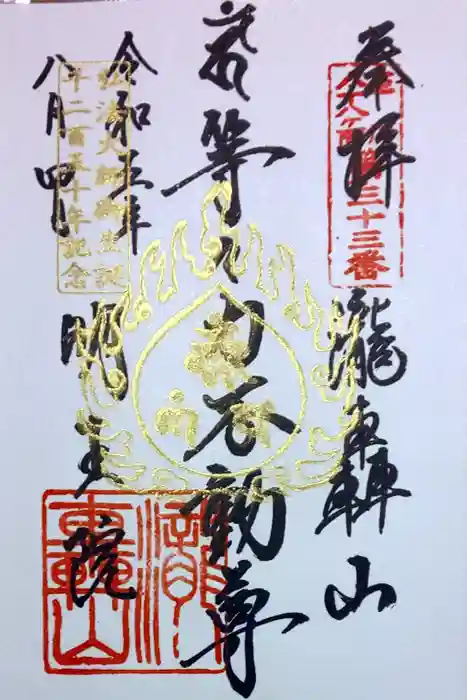 奉拝
八十八ヶ所 第三十三番
瀧轟山
等々力不動尊
令和五年
八月四日
弘法大師御生誕
千二百五十年記念
明王院
瀧轟山